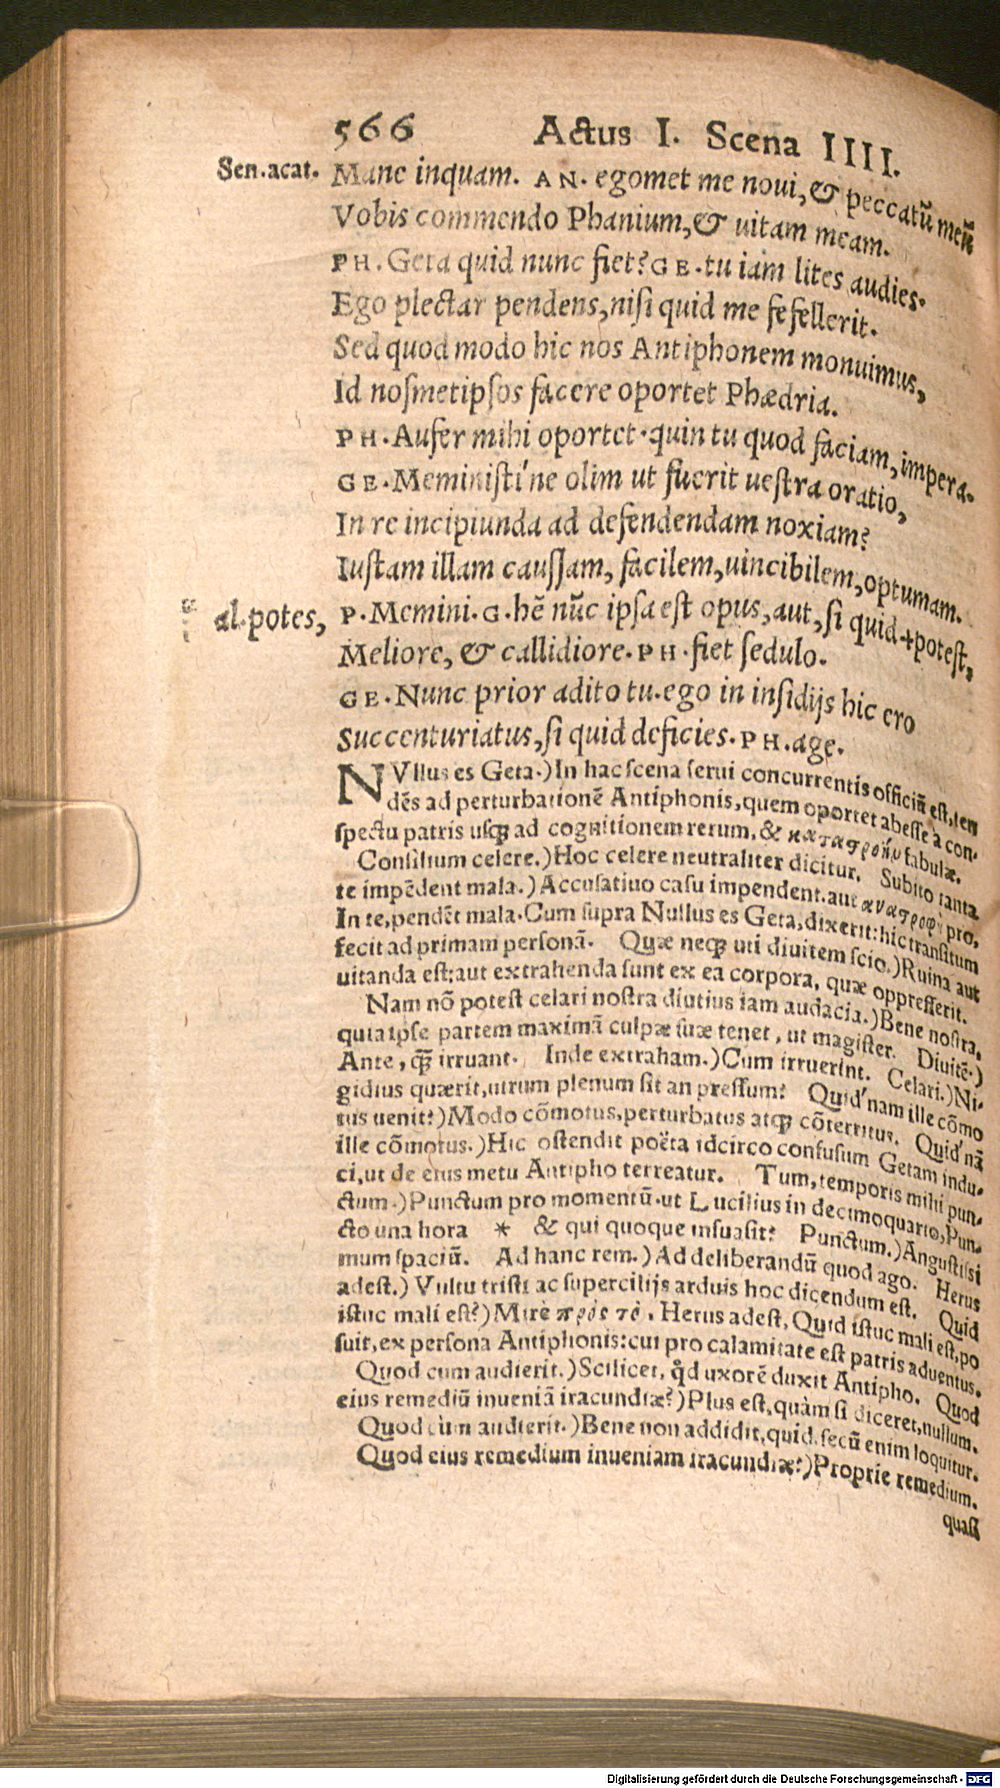 566 Actus I. Scena IIII.
Sen. acat. Mane inquam. AN. egomet me noui, & peccatũ meũ
Vobis commendo Phanium, & uitam meam.
PH. Geta quid nunc fiet? GE. tu iam lites audies.
Ego plectar pendens, nisi quid me fefellerit.
Sed quod modo hic nos Antiphonem monuimus,
Id nosmetipsos facere oportet Phædria.
PH. Aufer mihi oportet. quin tu quod faciam, impera.
GE. Meministi'ne olim ut fuerit uestra oratio,
In re incipiunda ad defendendam noxiam?
Iustam illam caussam, facilem, uincibilem, optumam.
al. potes, P. Memini. G. hẽ nũc ipsa est opus, aut, si quid + potest,
Meliore, & callidiore. PH. fiet sedulo.
GE. Nunc prior adito tu. ego in insidijs hic ero
Succenturiatus, si quid deficies. PH. age.
NVllus es Geta.) In hac scena serui concurrentis officiũ est, ten
dẽs ad perturbationẽ Antiphonis, quem oportet abesse à con-
spectu patris usq; ad cognitionem rerum, & fabulæ.
Consilium celere.) Hoc celere neutraliter dicitur. Subito tanta
te impẽdent mala.) Accusatiuo casu impendent. aut pro,
In te, pendẽt mala. Cum supra Nullus es Geta, dixerit: hic transitum
fecit ad primam personã. Quæ neq; uti diuitem scio.) Ruina aut
uitanda est; aut extrahenda sunt ex ea corpora, quæ oppresserit.
Nam nõ potest celari nostra diutius iam audacia.) Bene nostra,
quia ipse partem maximã culpæ suæ tenet, ut magister. Diuitẽ.)
Ante, q̃ irruant. Inde extraham.) Cum irruerint. Celari.) Ni-
gidius quærit, utrum plenum sit an pressum? Quid'nam ille cõmo
tus uenit?) Modo cõmotus, perturbatus atq; cõterritus. Quid'nã
ille cõmotus.) Hic ostendit poëta idcirco confusum Getam indu-
ci, ut de eius metu Antipho terreatur. Tum, temporis mihi pun-
ctum.) Punctum pro momentũ. ut Lucilius in decimoquarto, Pun-
cto una hora * & qui quoque insuasit? Punctum.) Angustissi
mum spaciũ. Ad hanc rem.) Ad deliberandũ quod ago. Herus
adest.) Vultu tristi ac supercilijs arduis hoc dicendum est. Quid
istuc mali est?) Mire πρὸς τὸ. Herus adest, Quid istuc mali est, po
suit, ex persona Antiphonis: cui pro calamitate est patris aduentus.
Quod cum audierit.) Scilicet, q̊d uxorẽ duxit Antipho. Quod
eius remediũ inueniã iracundiæ?) Plus est, quàm si diceret, nullum.
Quod cùm audierit.) Bene non addidit, quid. secũ enim loquitur.
Quod eius remedium inueniam iracundiæ?) Proprie remedium.
quasi
Digitalisierung gefördert durch die Deutsche Forschungsgemeinschaft - DFG